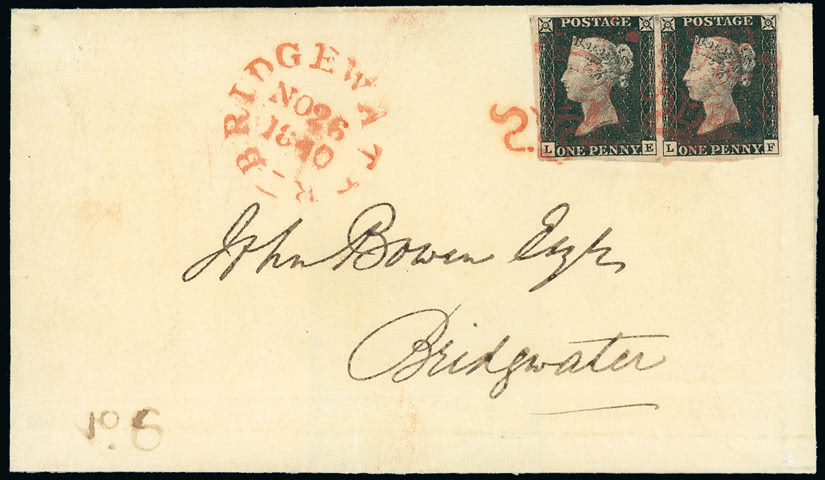 BRIDGEWATER
NO26
1840
POSTAGE POSTAGE
L ONE PENNY E L ONE PENNY F
John Bowen Esqr
Bridgwater